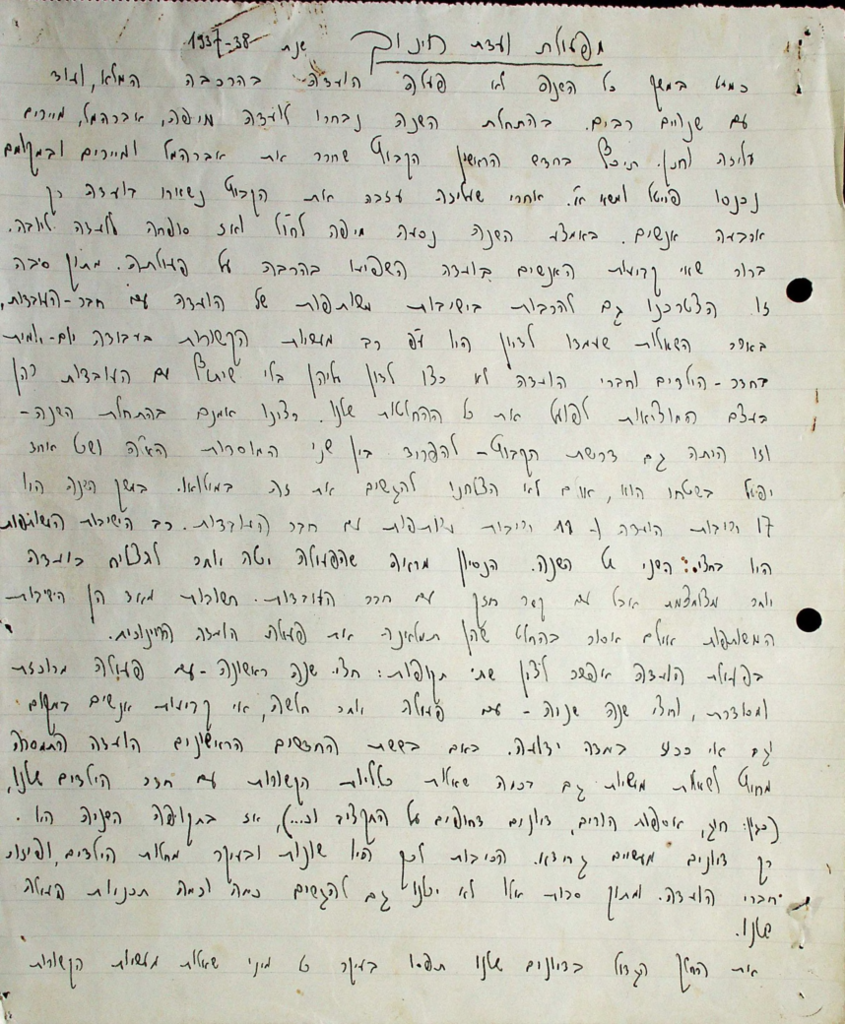 מפעולת ועדת חינוך שנת 1937-38
כמעט במשך כל השנה לא פעלה הועדה בהרכבה המלא, ועוד
עם שנויים רבים. בהתחלת השנה נבחרו לועדה מיפה, אברהמל, מירים
עליזה וחנן. תיכף בחדש הראשון הקבוץ שחרר את אברהמל ומירים ובמקומם
נכנסו פייטל ומשה א. אחרי שעליזה עזבה את הקבוץ נשארו בועדה רק
ארבעה אנשים. באמצע השנה נסעה מיפה לחו"ל ואז סופחה לועדה
ברור שאי קביעות האנשים בועדה השפיעו בהרבה על פעולתה. מתוך סיבה
זו הצטרכנו גם להרבות בישיבות משותפות של הועדה עם חבר-העובדות,
באשר השאלות שעמדו לדיון היו עפ"י רב מעשיות הקשורות בעבודה יום-יומית
בחדר-הילדים וחברי הועדה לא רצו לדון עליהן בלי שיתוף עם העובדות והן
בעצם המוציאות לפועל את כל ההחלטות שלנו. רצינו אמנם בהתחלת השנה-
וזו היתה גם דרישת הקבוץ- להפריד בין שני המוסדות האלה ושכל אחד
יפעל בשטחו הוא, אולם לא הצלחנו להגשים את זה במילואו. במשך השנה היו
17 ישיבות הועדה ו ישיבות משותפות עם חבר העובדות. רב הישיבות המשותפות
היו בחצי השני של השנה. הנסיון מראה שהפעולה יכולה יותר להצליח בועדה
יותר מצומצמת אבל עם קשר חזק עם חבר העובדות. חשובות מאד הן הישיבות
המשותפות אולם אסור בהחלט שהן תמלאינה את פעולת הועדה החינוכית.
בפעולת הועדה אפשר לציין שתי תקופות: חצי שנה ראשונה - עם פעולה מרוכזת
ומסודרת, וחצי שנה שניה - עם פעולה יותר חלשה, אי קביעות אנשים במקום
וגם אי רכוז במדה ידועה. באם בששת החדשים הראשונים הועדה התמסרה
מחוץ לשאלות מעשיות גם לכמה שאלות כלליות הקשורות עם חדר הילדים שלנו,
(כגון: חוג, אסיפות הורים, דיונים דחופים על התקציב וכ...), אז בתקופה השניה היו
רק דיונים מעשיים גרידא. הסיבות לכך היו שונות ובעיקר מחלות הילדים, ופיזור
חברי הועדה. ומתוך סבות אלו לא יכולנו גם להגשים כמה וכמה תכניות פעולה
שלנו.
את החלק הגדול בדיונים שלנו תפסו בעיקר כל מיני שאלות מעשיות הקשורות